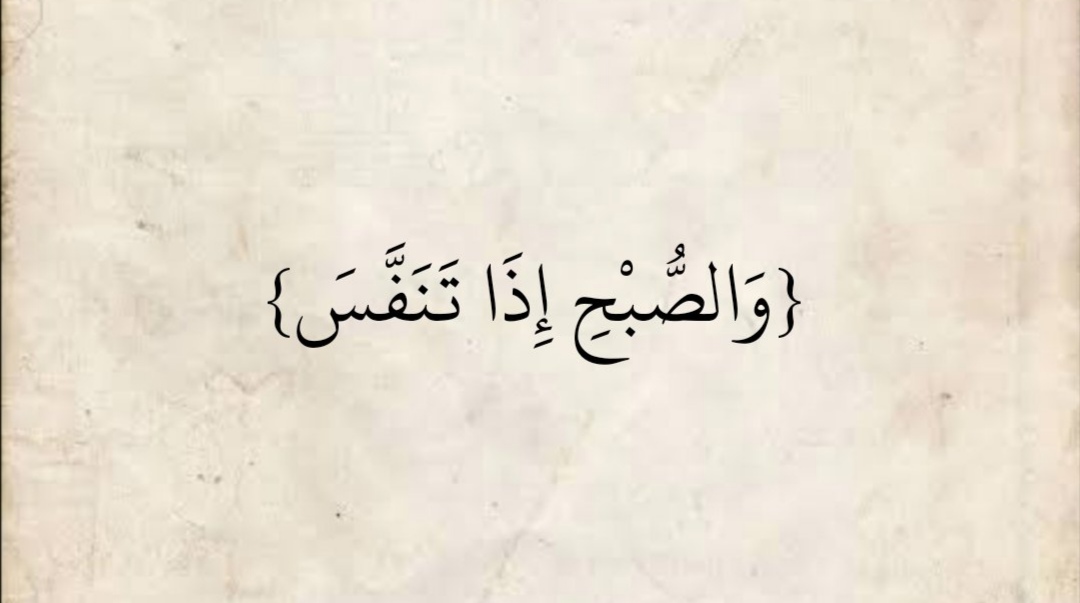 {وَالصُّبْحِ إِذَا تَنَفَّسَ}